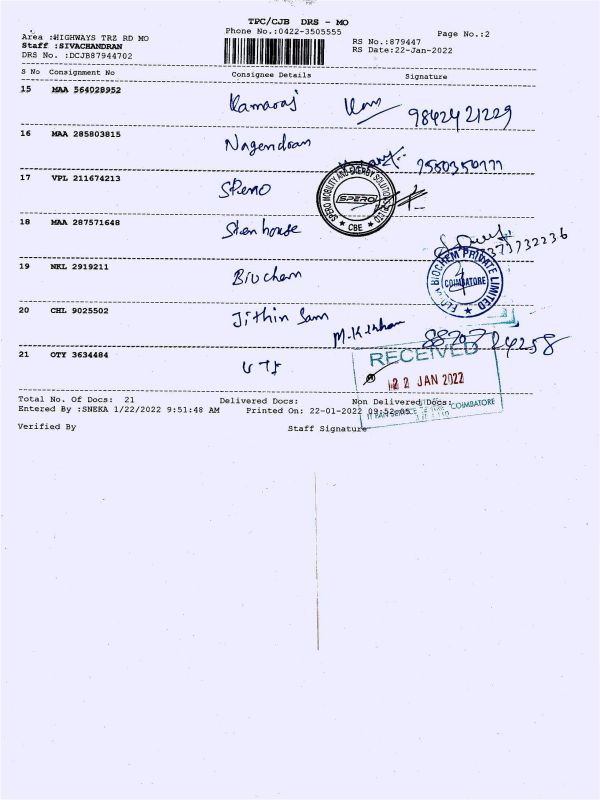 TPC/CJB DRS - MO
Phone No.:0422-3505555
Page No.:2
Area :HIGHWAYS TRZ RD MO
Staff :SIVACHANDRAN
RS No.:879447
DRS No. :DCJB87944702
RS Date:22-Jan-2022
S No Consignment No Consignee Details Signature
15 MAA 564028952 Kamaraj 98424 21229
16 MAA 285803815 Nagendran
17 VPL 211674213 Spero
SPERO MOBILITY AND ENERGY SOLUTIONS
SPERO
CBE
18 MAA 287571648 Sten house
19 NKL 2919211 Biochem
BIOCHEM PRIVATE LIMITED
COIMBATORE
20 CHL 9025502 Jithin Sam
21 OTY 3634484
RECEIVED
22 JAN 2022
COIMBATORE
Total No. Of Docs: 21 Delivered Docs: Non Delivered Docs:
Entered By :SNEKA 1/22/2022 9:51:48 AM Printed On: 22-01-2022 09:52:05
Verified By Staff Signature